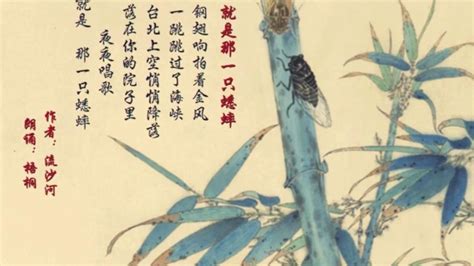 就是那一只蟋蟀
钢翅响拍着金风
一跳跳过了海峡
台北上空悄悄降落
落在你的院子里
夜夜唱歌
就是 那一只蟋蟀
作者：流沙河
朗诵：梧桐